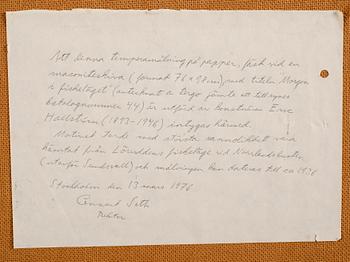 Att denna temperamålning på papper, fäst vid en
masonitskiva (format 76 x 98 cm), med titeln Morgon
i fiskeläget (antecknat a tergo jämte ett till synes
katalognummer 44) är utförd av konstnären Eric
Hallström (1893-1946) intygas härmed.
Motivet torde med största sannolikhet vara
hämtat från Lövuddens fiskeläge vid Norrlandskusten
(utanför Sundsvall) och målningen kan dateras till ca 1936
Stockholm den 13 mars 1976
Lennart Seth